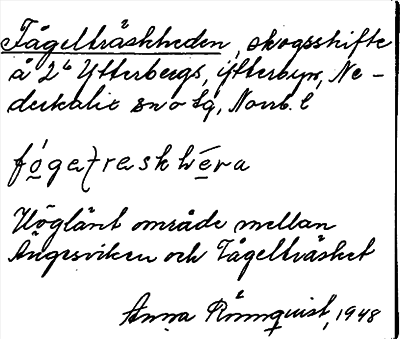 Fågelträskheden, skogsskifte
å 2⁶ Ytterbergs, Ytterbyn, Ne-
derkalix sn o tg, Norrb. l
Höglänt område mellan
Ängesviken och Fågelträsket
Anna Rönnquist, 1948